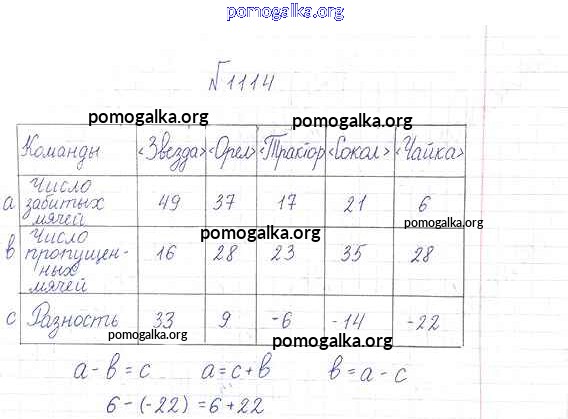 pomogalka.org
№1114
pomogalka.org
pomogalka.org
Команды «Звезда» «Орел» «Трактор «Сокол» «Чайка»
а Число забитых мячей 49 37 17 21 6
pomogalka.org
pomogalka.org
в Число пропущен- ных мячей 16 28 23 35 28
с Разность 33 9 -6 -14 -22
pomogalka.org
pomogalka.org
а - в = с а = с + в в = а - с
6 - (-22) = 6 + 22